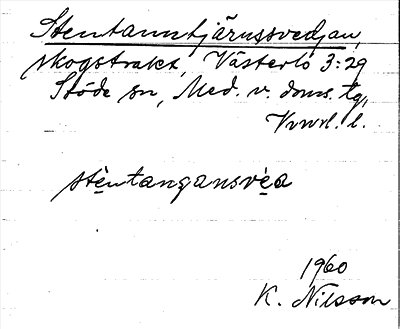 Stentanntjärnssvedjan,
skogstrakt, Västerlo 3:29
Stöde sn, Med. v. doms. tg,
Vnrl. l.
stèntangansvéa
1960
K. Nilsson